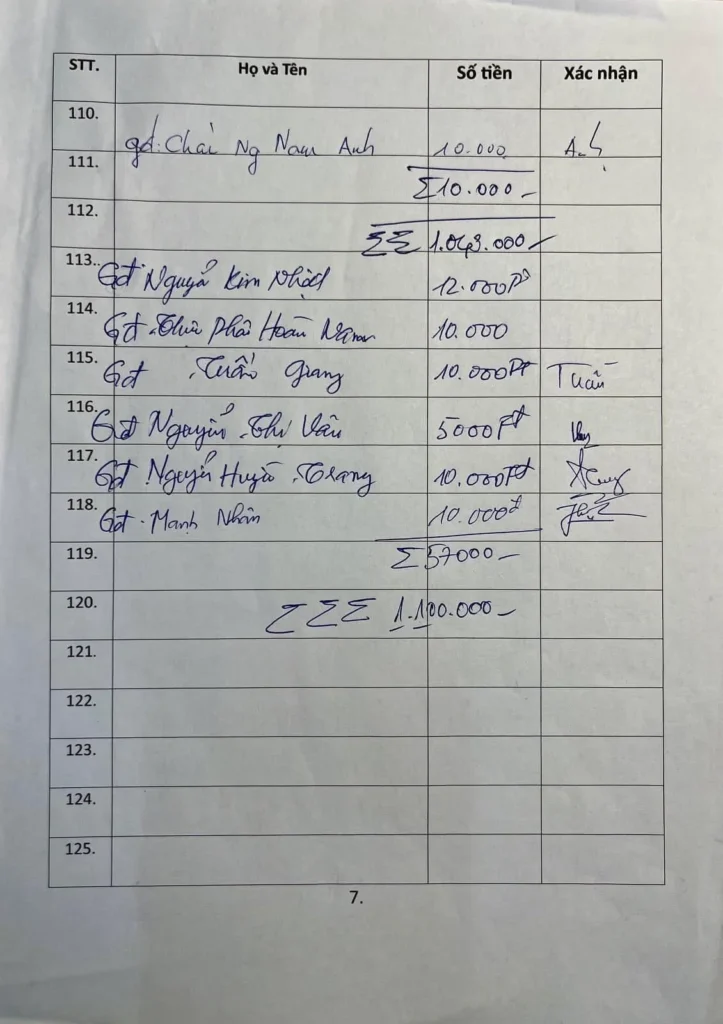 STT. Họ và Tên Số tiền Xác nhận
110. gđ: Chải Ng Nam Anh 10.000
111. Σ 10.000 –
112. ΣΣ 1.043.000 –
113. Gđ Nguyễn Kim 12.000Ft
114. Gđ. Hoàn 10.000
115. Gđ Tuấn Giang 10.000Ft Tuấn
116. Gđ Nguyễn Thị Vân 5000Ft
117. Gđ Nguyễn Huyền Trang 10.000Ft
118. Gđ. Mạnh Nhân 10.000đ
119. Σ 57000 –
120. ΣΣΣ 1.100.000 –
121.
122.
123.
124.
125.
7.